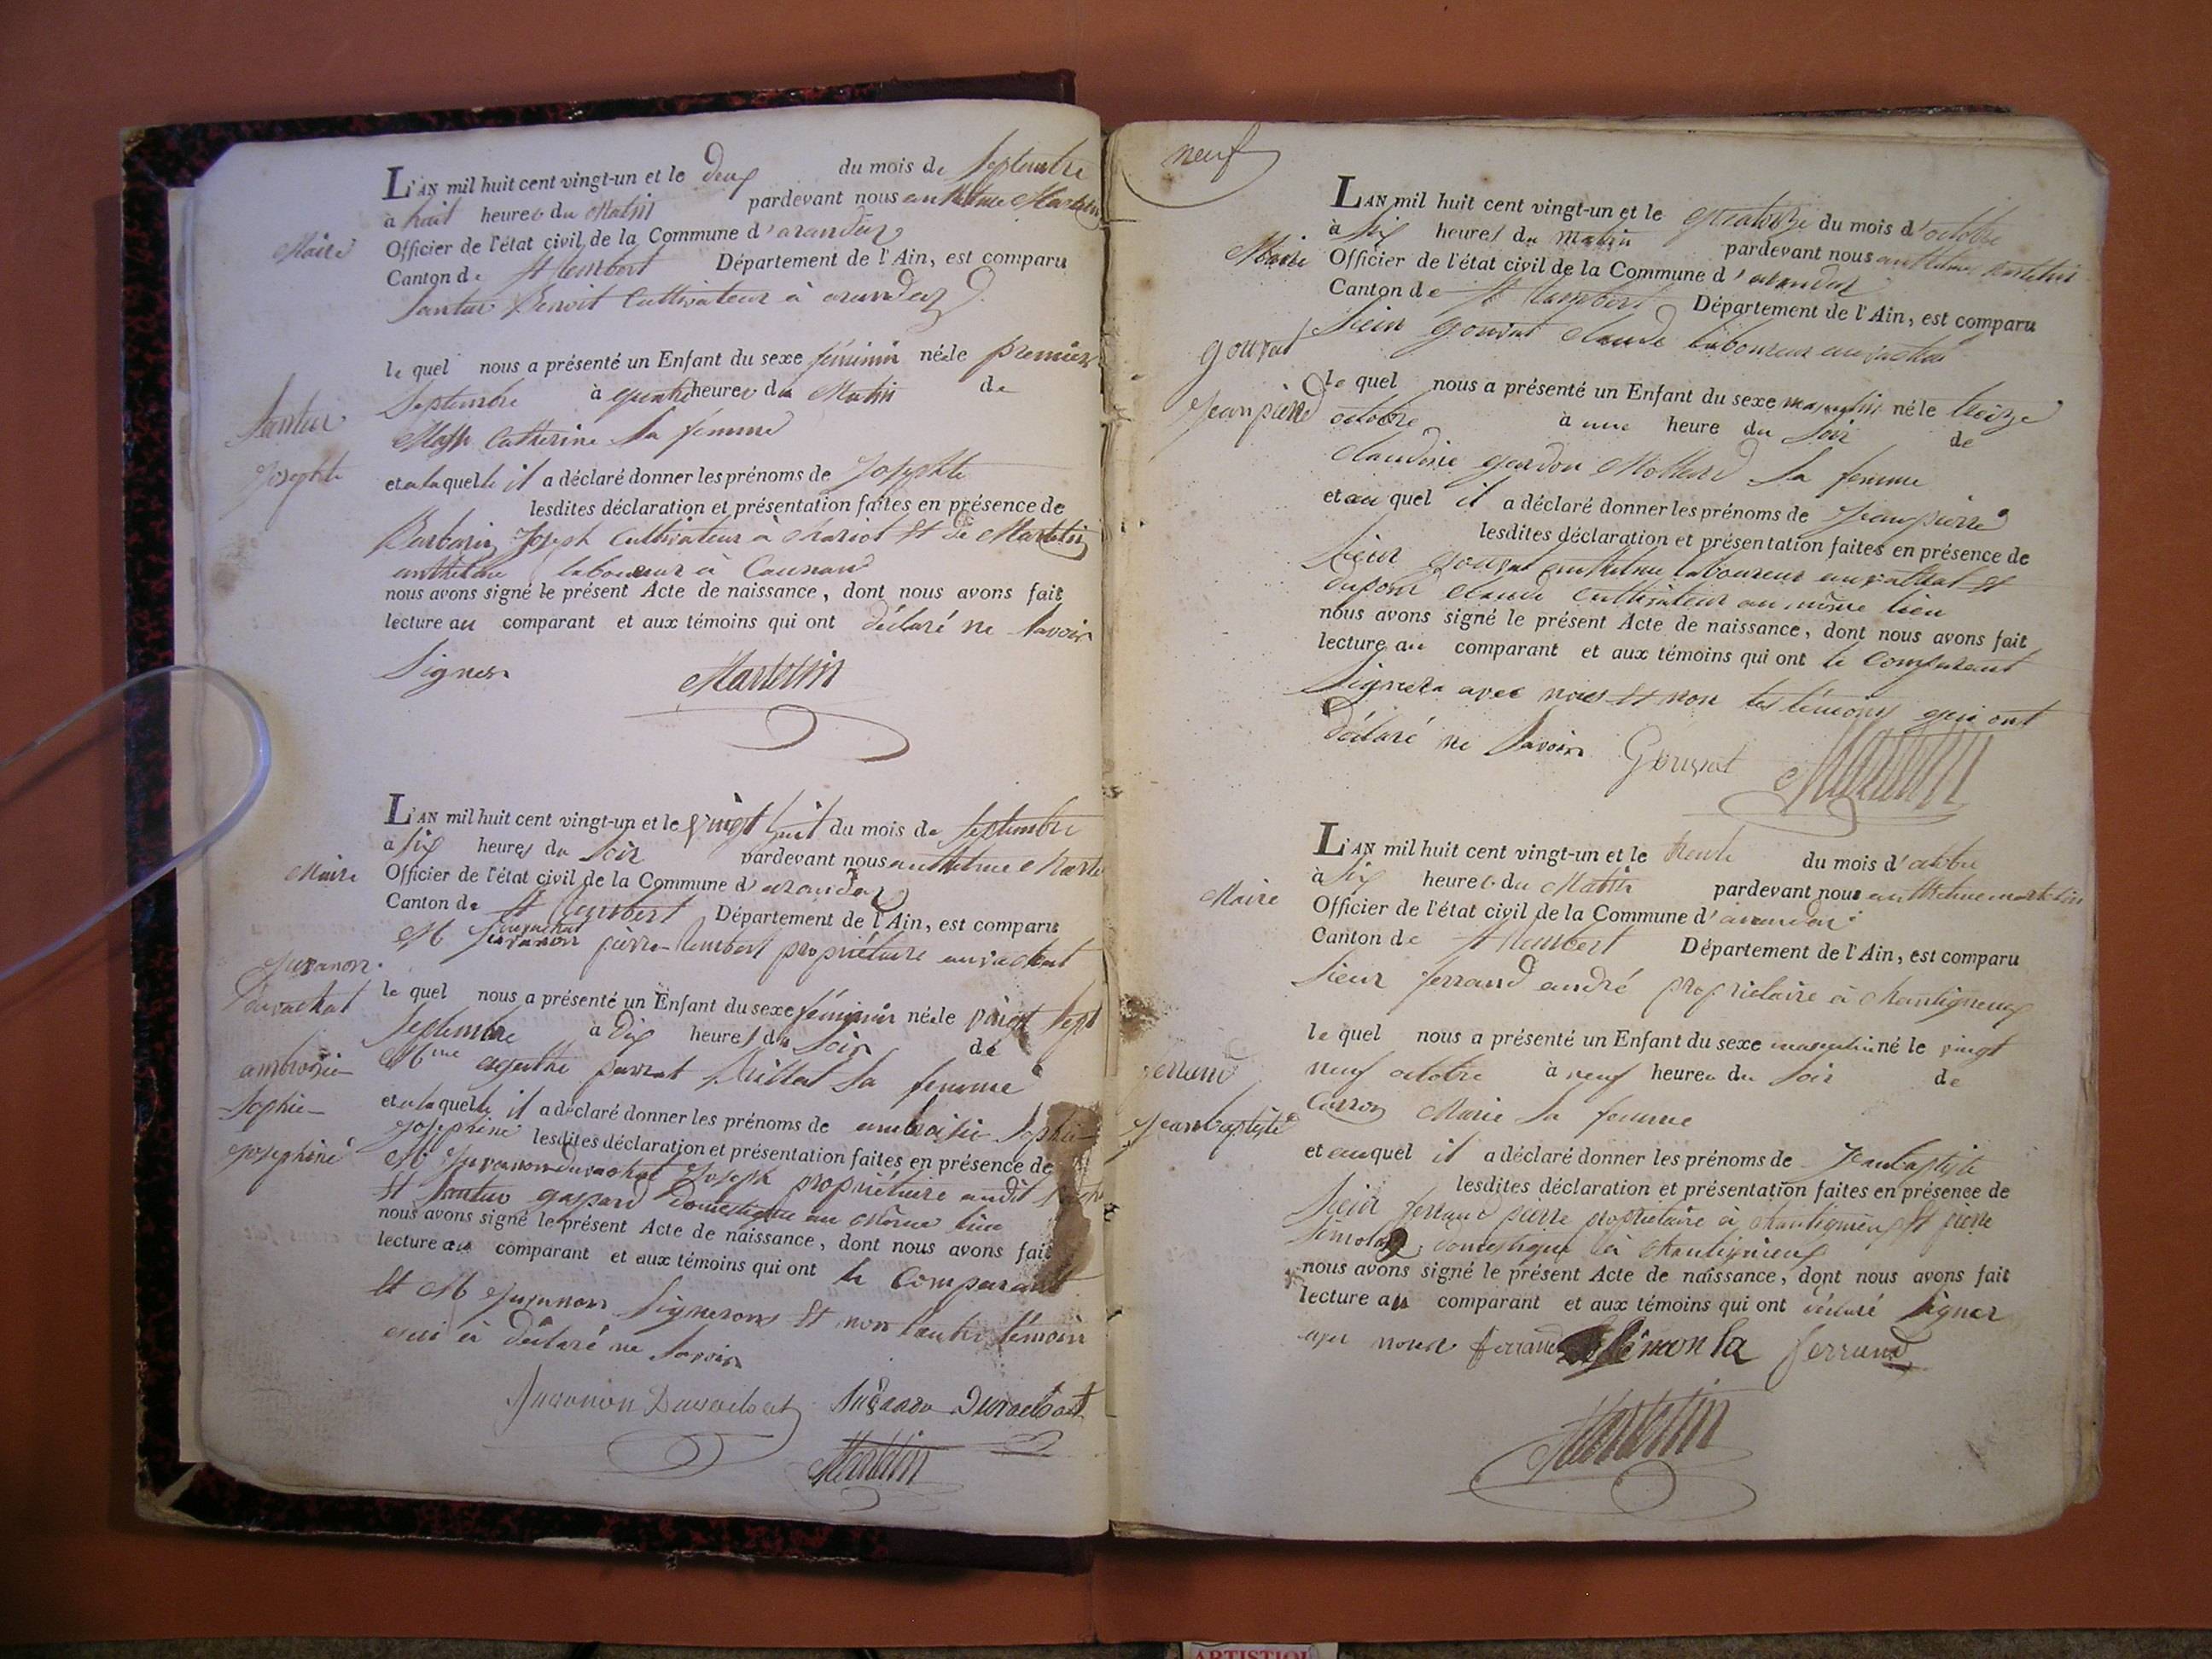 L'AN mil huit cent vingt-un et le deux du mois de Septembre
à huit heures du Matin pardevant nous anthelme Martelin
Maire Officier de l'état civil de la Commune d'arandas
Canton de St Rambert Département de l'Ain, est comparu
Santus Benoit Cultivateur à arandas
le quel nous a présenté un Enfant du sexe féminin née le premier
Septembre à quatre heures du Matin de
Santus
Catherine Sa femme
Josephte
et a laquelle il a déclaré donner les prénoms de Josephte
lesdites déclaration et présentation faites en présence de
Barbarin Joseph Cultivateur à et de Martelin
anthelme laboureur à
nous avons signé le présent Acte de naissance, dont nous avons fait
lecture au comparant et aux témoins qui ont déclaré ne Savoir
Signer Martelin
L'AN mil huit cent vingt-un et le vingt huit du mois de Septembre
à Six heures du Soir pardevant nous anthelme Marte
Maire Officier de l'état civil de la Commune d'arandas
Canton de St Rambert Département de l'Ain, est comparu
M Juvanon duvachat pierre Rambert propriétaire au vachat
Juvanon
duvachat
le quel nous a présenté un Enfant du sexe féminin née le vingt Sept
Septembre à Dix heures du Soir de
ambroisie
Sophie
Josephine
Mme agathe Sa femme
et a laquelle il a déclaré donner les prénoms de ambroisie Sophie
Josephine lesdites déclaration et présentation faites en présence de
M Juvanon duvachat Joseph propriétaire audit
et Santus gaspard Domestique au même lieu
nous avons signé le présent Acte de naissance, dont nous avons fait
lecture au comparant et aux témoins qui ont le Comparant
et M Juvanon Signerons et non l'autre témoin
qui à déclaré ne Savoir
Juvanon Duvachat Juvanon Duvachat
Martelin
neuf
L'AN mil huit cent vingt-un et le quatorze du mois d'octobre
à Six heures du Matin pardevant nous anthelme Martelin
Maire Officier de l'état civil de la Commune d'arandas
Canton de St Rambert Département de l'Ain, est comparu
Sieur gourrat Claude laboureur au vachat
gourrat
Jean pierre
le quel nous a présenté un Enfant du sexe masculin né le treize
octobre à une heure du Soir de
claudine Sa femme
et au quel il a déclaré donner les prénoms de Jean pierre
lesdites déclaration et présentation faites en présence de
Sieur gourrat anthelme laboureur au vachat et
dupont Claude Cultivateur au même lieu
nous avons signé le présent Acte de naissance, dont nous avons fait
lecture au comparant et aux témoins qui ont le Comparant
Signera avec nous et non les témoins qui ont
déclaré ne Savoir Gourrat Martelin
L'AN mil huit cent vingt-un et le trente du mois d'octobre
à Six heures du Matin pardevant nous anthelme martelin
Maire Officier de l'état civil de la Commune d'arandas
Canton de St Rambert Département de l'Ain, est comparu
Sieur ferrand andré propriétaire à
le quel nous a présenté un Enfant du sexe masculin né le vingt
neuf octobre à neuf heures du Soir de
ferrand
Jean baptiste
Carron Marie Sa femme
et au quel il a déclaré donner les prénoms de Jean baptiste
lesdites déclaration et présentation faites en présence de
Sieur ferrand pierre propriétaire à et pierre
domestique à
nous avons signé le présent Acte de naissance, dont nous avons fait
lecture au comparant et aux témoins qui ont déclaré Signer
avec nous ferrand ferrand
Martelin